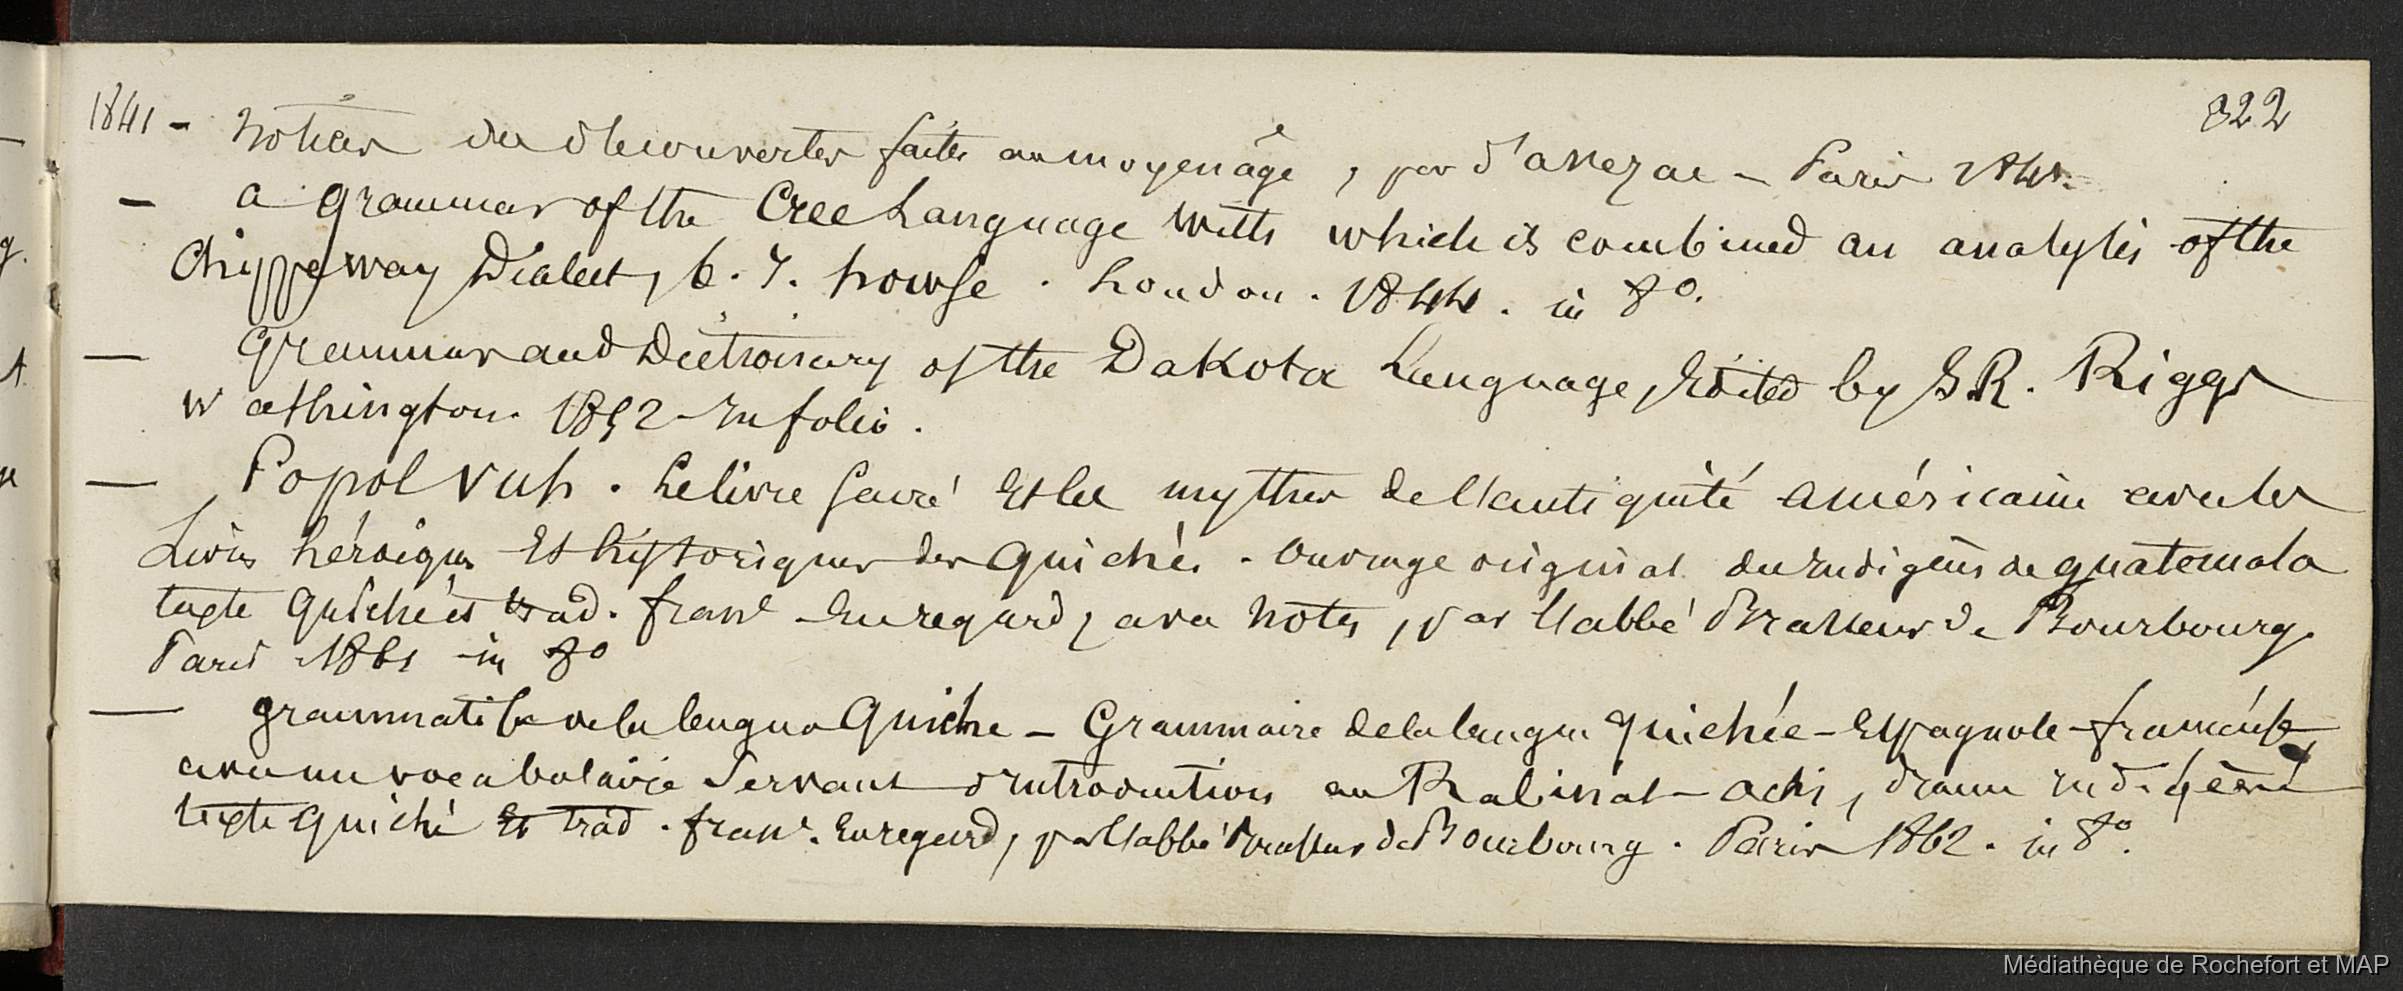 322
1841 - Notices des découvertes faites au moyen âge, par d'avezac - Paris
- a grammar of the Cree Language with which is combined an analysis of the
Chippeway Dialect, b. J. howse. London. 1844. in 8°.
- Grammar and Dictionary of the Dakota Language, Edited by S R. Riggs
Washington. 1852 - In folio.
- Popol Vuh. Le livre sacré Et les mythes de l'antiquité américaine avec les
Livres héroïques Et historiques des Quichés. Ouvrage original des Indigènes de guatemala
texte Quiché et trad. franç En regard, avec Notes, par l'abbé Brasseur de Bourbourg.
Paris 1861 in 8°
- grammatica de la lengua Quiche - Grammaire de la langue Quichée - Espagnole - française
avec un vocabulaire Servant d'Introduction au Rabinal - achi, drame indigène
texte Quiché Et trad. franç. En regard, par l'abbé Brasseur de Bourbourg. Paris 1862. in 8°.
Médiathèque de Rochefort et MAP